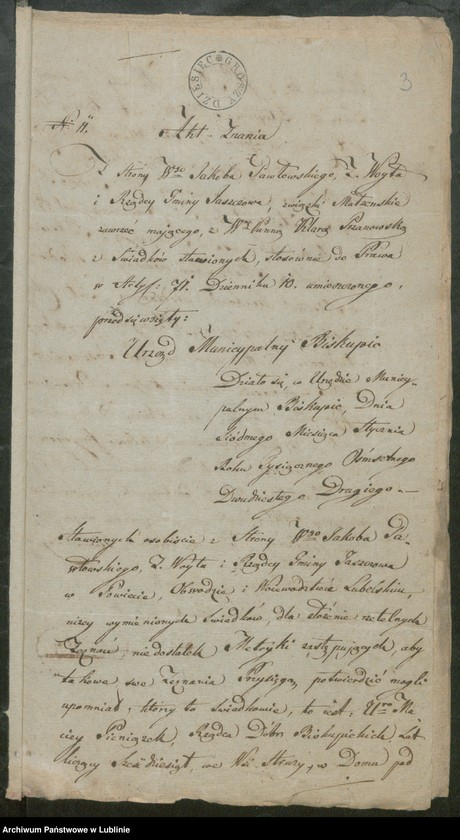 DZIESIĘC GROSZY
3
Nº 11.
Akt Znania
Z Strony Wgo Jakoba Pawłowskiego, Z. Woyta
i Rządcy Gminy Jaszczowa, związki Małżenskie
zawrzeć mającego, z Wną Panną Klarą
z Świadków stawionych, stosównie do Prawa
w Artyf: 71. Dzienniku 10. umieszczonego,
przedsięwzięty:
Urząd Municypalny Biskupic
Działo się, w Urzędzie Municy-
palnym Biskupic, Dnia
Siódmego Miesiąca Stycznia
Roku Tysiącznego Ośmsetnego
Dwudziestego Drugiego.
Stawionych osobiście z Strony Wgo Jakoba Pa-
włowskiego, Z. Woyta i Rządcy Gminy Jaszczowa
w Powiecie, Obwodzie i Woiewództwie Lubelskim,
niżey wymienionych Świadków, dla złożenia rzetelnych
Zeznań, niedostatek Metryki zastępuiących, aby
takowe swe Zeznania Przysięgą potwierdzić mogli
upomniał, którzy to Swiadkowie, to iest, Uro Ma-
ciey Pieniążek, Rządca Dóbr Biskupickich Lat
liczący Sześdziesiąt, we Wsi Struży, w Domu pod
Archiwum Państwowe w Lublinie